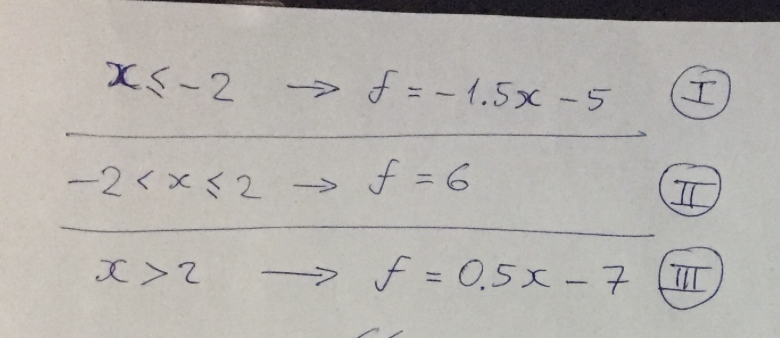 x ≤ -2 → f = -1.5x - 5 I
-2 < x ≤ 2 → f = 6 II
x > 2 → f = 0.5x - 7 III